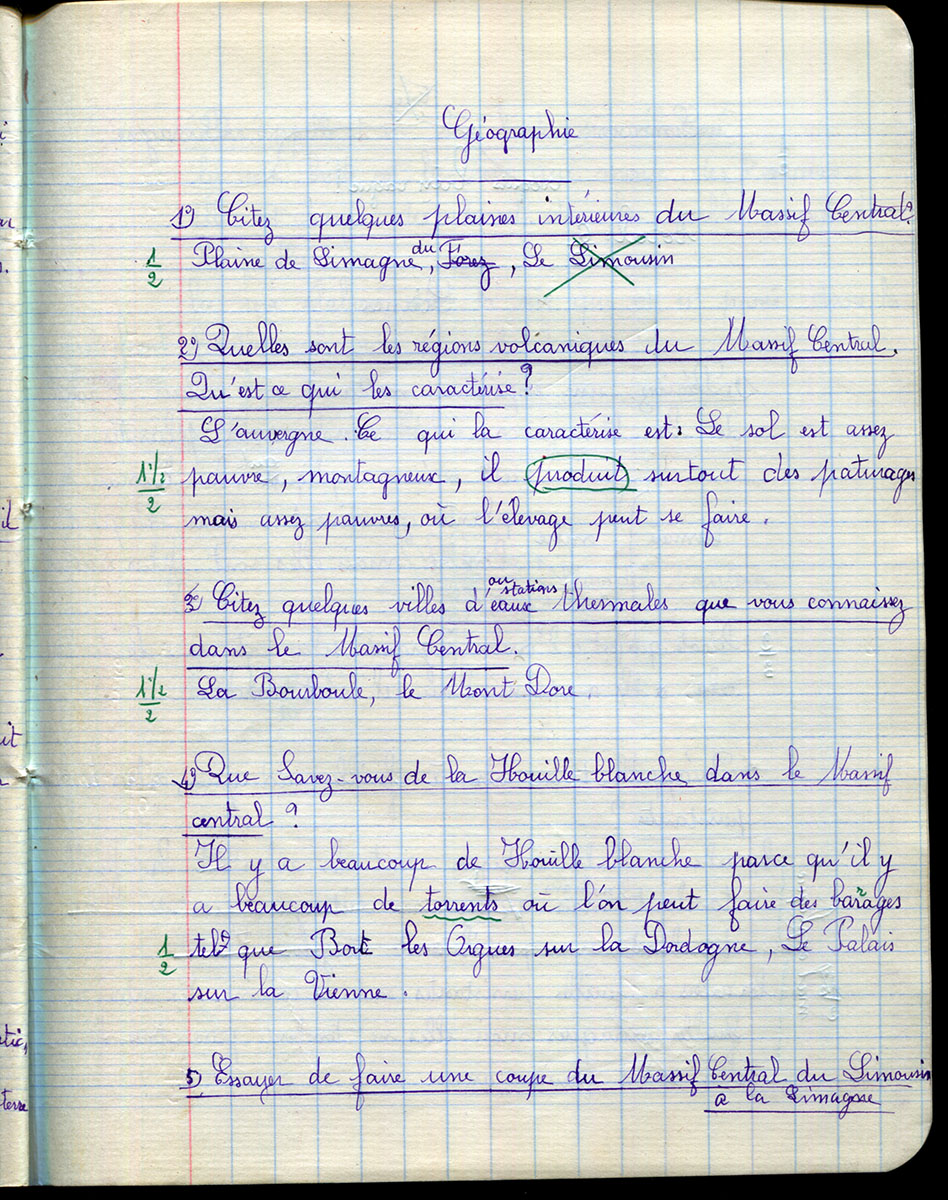 Géographie
1º) Citez quelques plaines intérieures du Massif Central?
1/2 Plaine de Limagne, du Forez, Le Limousin
2º) Quelles sont les régions volcaniques du Massif Central.
Qu'est ce qui les caractérise?
L'auvergne. Ce qui la caractérise est: Le sol est assez
1 1/2 / 2 pauvre, montagneux, il produit surtout des paturages
mais assez pauvres, où l'élevage peut se faire.
3º) Citez quelques villes d'eaux ou stations thermales que vous connaissez
dans le Massif Central.
1 1/2 / 2 La Bourboule, le Mont Dore.
4º) Que Savez-vous de la Houille blanche dans le Massif
central?
Il y a beaucoup de Houille blanche parce qu'il y
a beaucoup de torrents où l'on peut faire des barrages
1/2 tels que Bort les Orgues sur la Dordogne, Le Palais
sur la Vienne.
5) Essayer de faire une coupe du Massif Central du Limousin
a la Limagne
il
it
tic,
terre